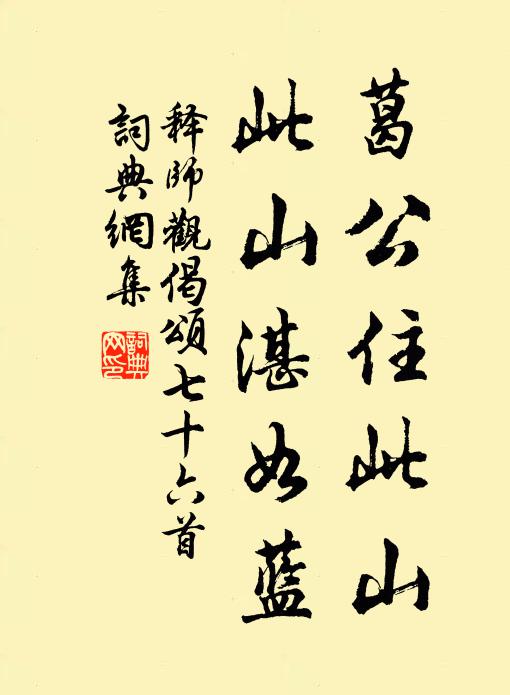 葛公住此山
此山湛如藍
释師觀偈頌七十六首
詞典網集
詞典网印